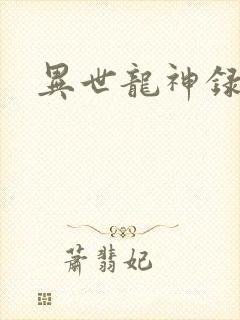 異世龍神録
蕭翡妃